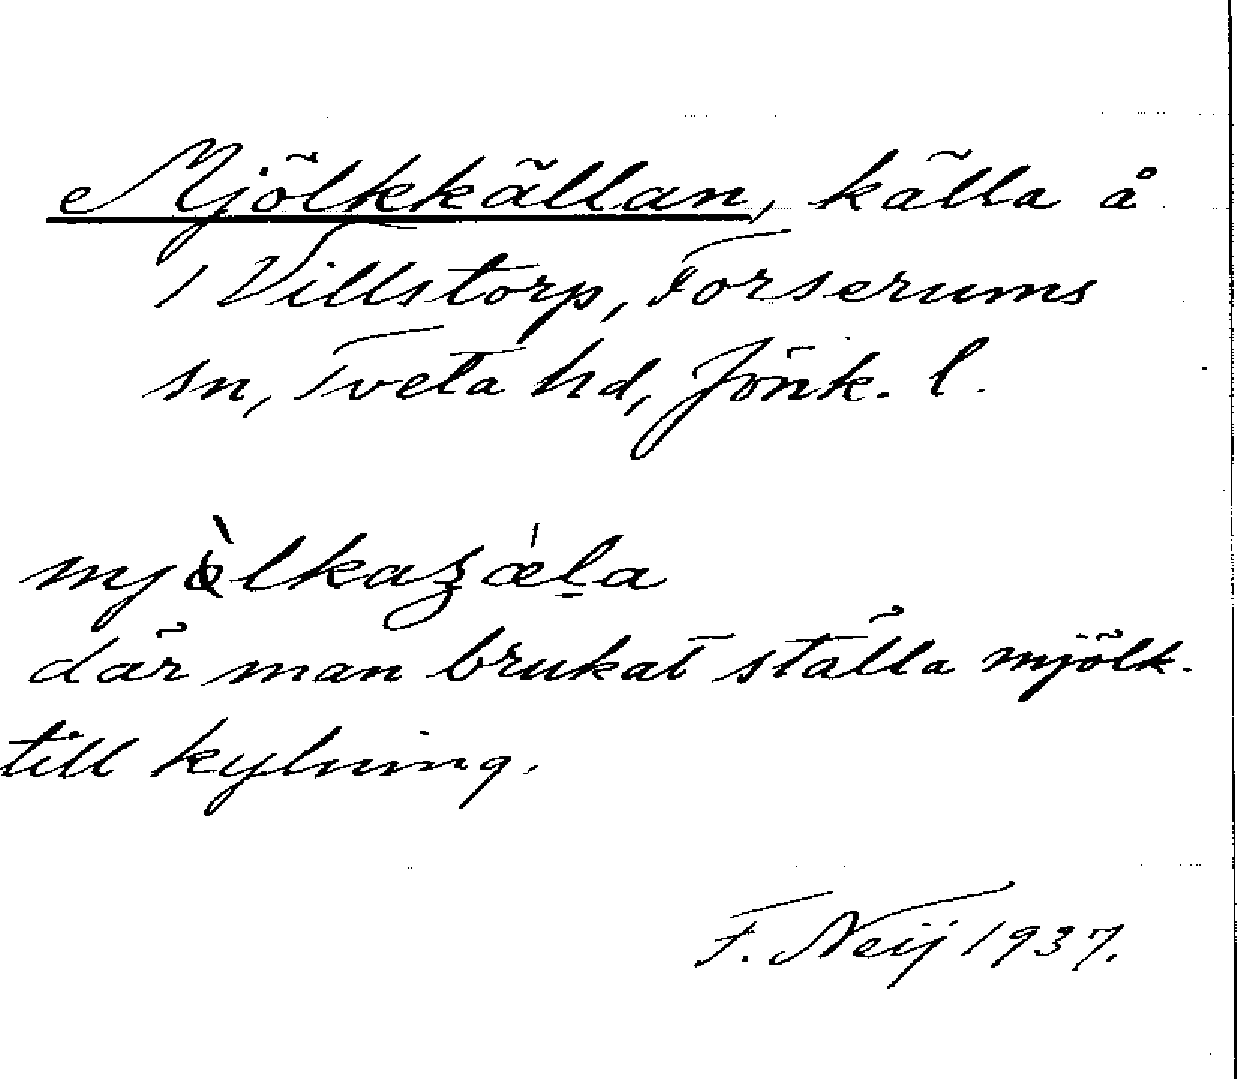 Mjölkkällan, källa å
1 Villstorp, Forserums
sn, Tveta hd, Jönk. l.
där man brukat ställa mjölk
till kylning.
F. Neij 1937.